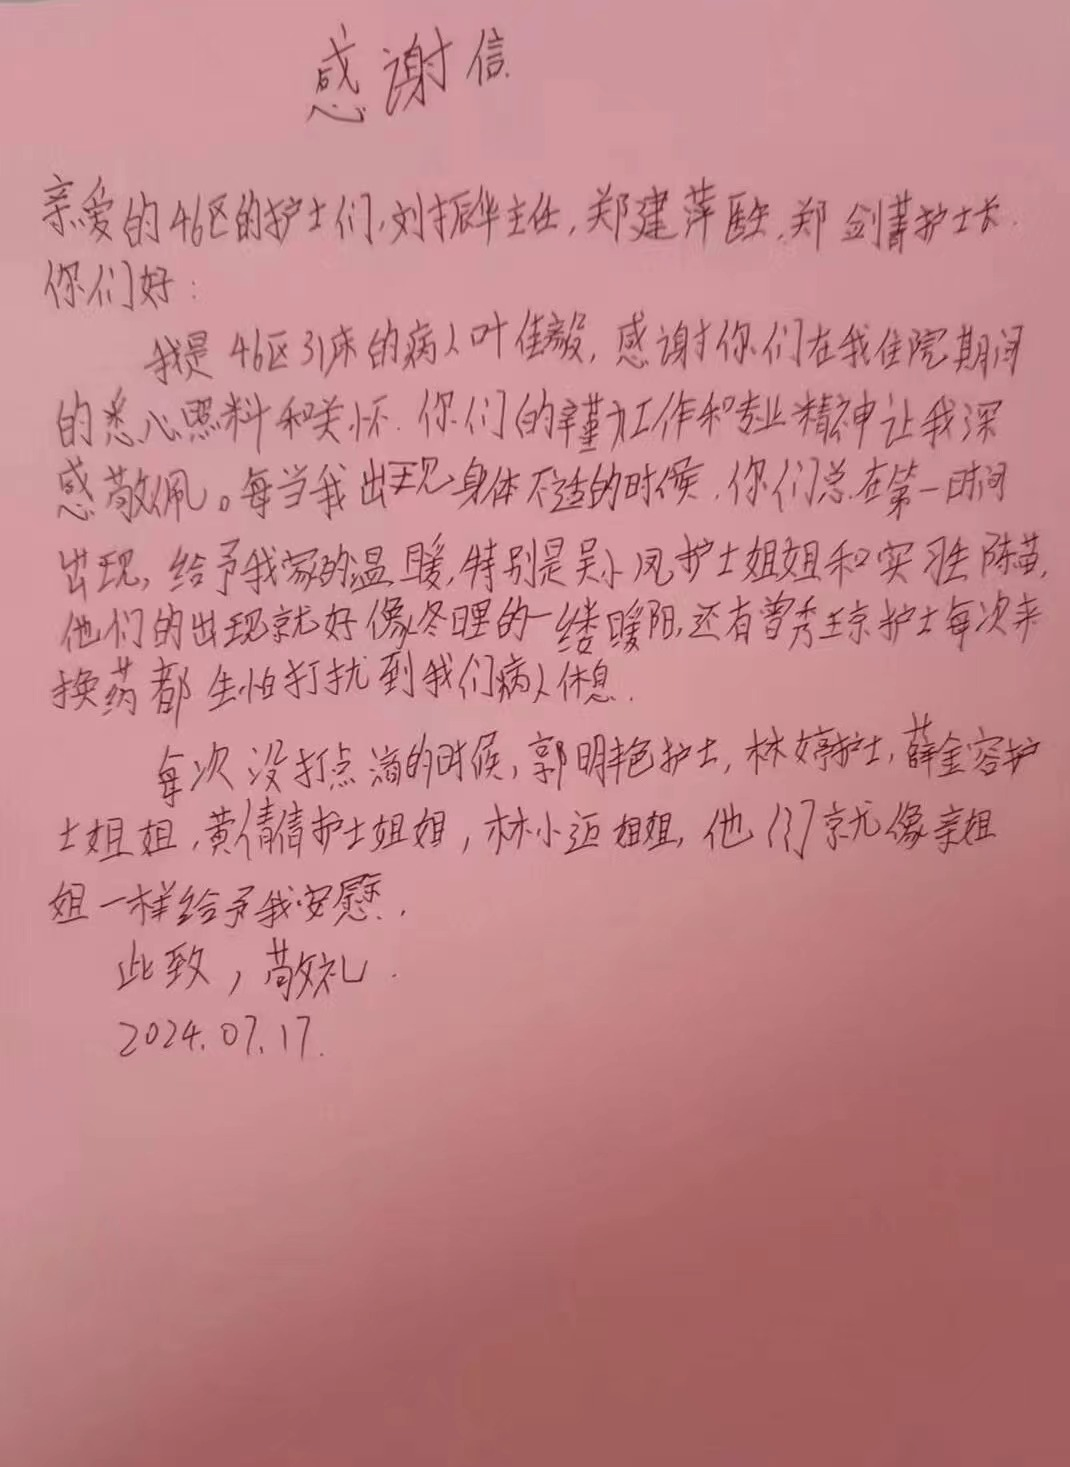 感谢信
亲爱的46区的护士们,刘振华主任,郑建萍医生,郑剑菁护士长.
你们好:
我是46区31床的病人叶佳毅,感谢你们在我住院期间
的悉心照料和关怀.你们的辛勤工作和专业精神让我深
感敬佩。每当我出现身体不适的时候,你们总在第一时间
出现,给予我家的温暖,特别是吴小凤护士姐姐和实习生陈苗,
他们的出现就好像冬日里的一缕暖阳,还有曾秀琼护士每次来
换药都生怕打扰到我们病人休息.
每次没打点滴的时候,郭明艳护士,林婷护士,薛金容护
士姐姐,黄倩倩护士姐姐,林小迈姐姐,他们就像亲姐
姐一样给予我安慰.
此致,敬礼.
2024.07.17.